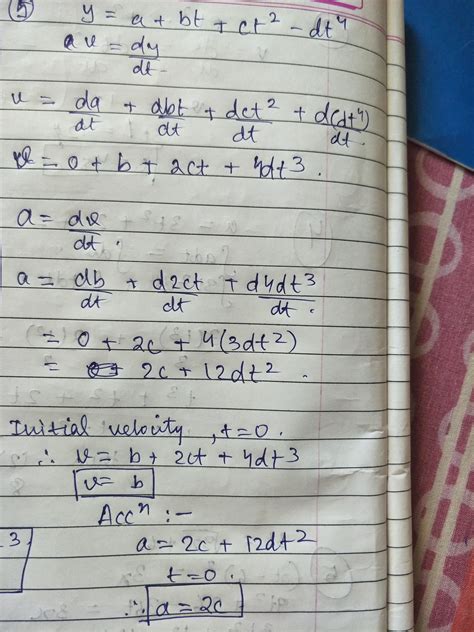 (5) y = a + bt + ct² - dt⁴
a v = dy/dt
v = da/dt + dbt/dt + dct²/dt + d(dt⁴)/dt.
v = 0 + b + 2ct + 4dt3.
a = dv/dt.
a = db/dt + d2ct/dt + d4dt3/dt.
= 0 + 2c + 4(3dt²)
= 2c + 12dt².
Initial velocity, t=0.
∴ v = b + 2ct + 4dt3
v = b
Accⁿ :-
3
a = 2c + 12dt2
t = 0.
∴ a = 2c